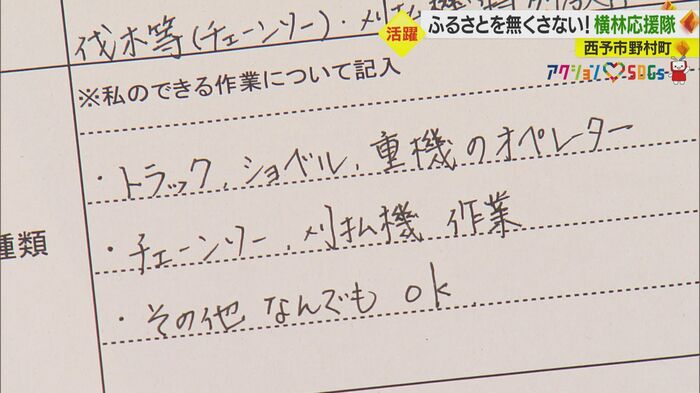 伐木等(チェーンソー)・刈払機
活躍
ふるさとを無くさない!横林応援隊
西予市野村町
アクション SDGs
※私のできる作業について記入
・トラック、ショベル、重機のオペレーター
種類
・チェーンソー、刈払機 作業
・その他 なんでも ok